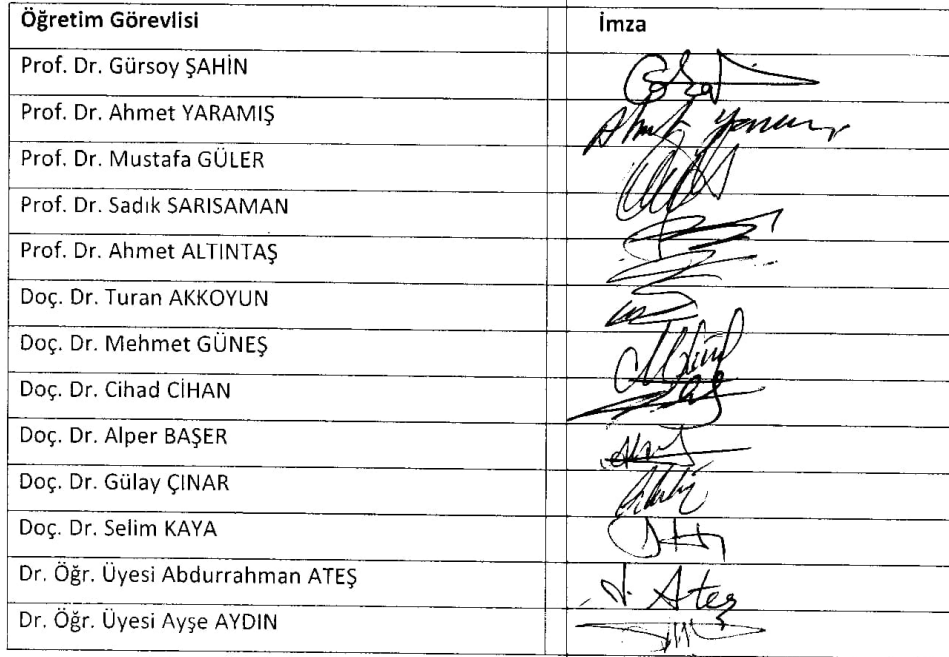 Öğretim Görevlisi İmza
Prof. Dr. Gürsoy ŞAHİN
Prof. Dr. Ahmet YARAMIŞ
Prof. Dr. Mustafa GÜLER
Prof. Dr. Sadık SARISAMAN
Prof. Dr. Ahmet ALTINTAŞ
Doç. Dr. Turan AKKOYUN
Doç. Dr. Mehmet GÜNEŞ
Doç. Dr. Cihad CİHAN
Doç. Dr. Alper BAŞER
Doç. Dr. Gülay ÇINAR
Doç. Dr. Selim KAYA
Dr. Öğr. Üyesi Abdurrahman ATEŞ Ateş
Dr. Öğr. Üyesi Ayşe AYDIN